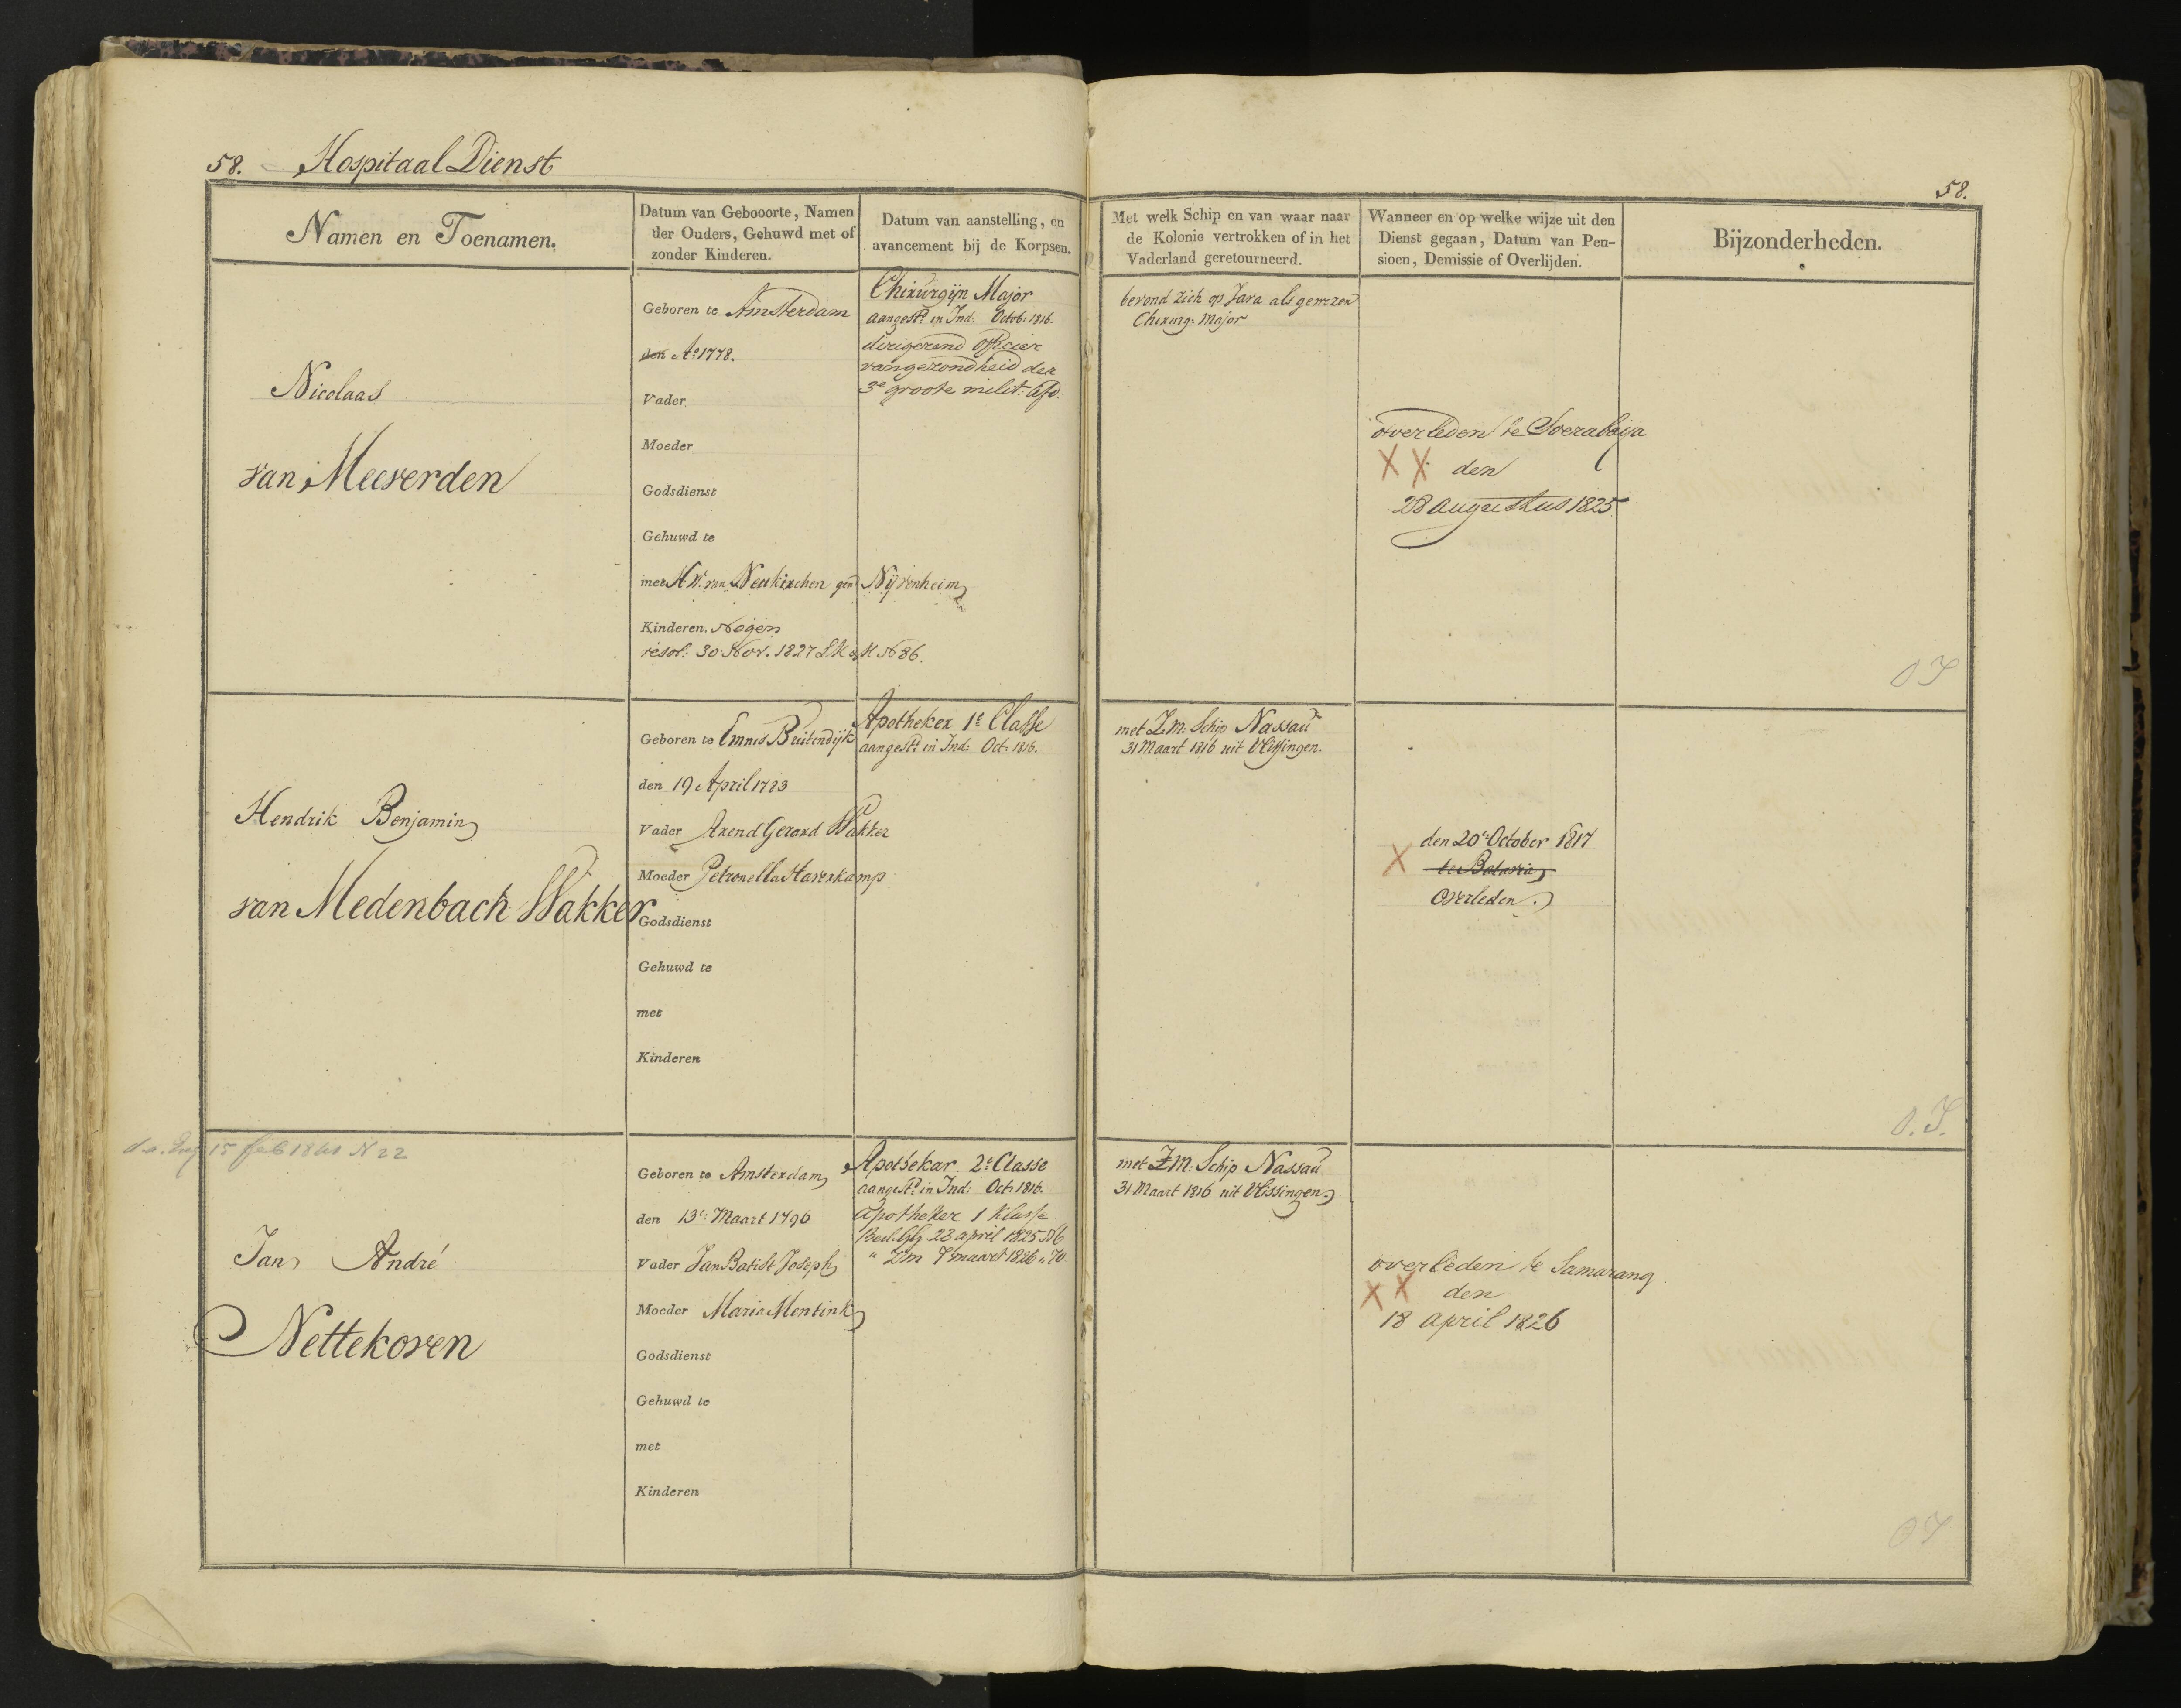 58. Hospitaal Dienst
58.
Namen en Toenamen.
Datum van Gebooorte, Namen
der Ouders, Gehuwd met of
zonder Kinderen.
Datum van aanstelling, en
avancement bij de Korpsen.
Met welk Schip en van waar naar
de Kolonie vertrokken of in het
Vaderland geretourneerd.
Wanneer en op welke wijze uit den
Dienst gegaan, Datum van Pen-
sioen, Demissie of Overlijden.
Bijzonderheden.
Nicolaas
van Meeverden
Geboren te Amsterdam
den Ao 1778.
Vader
Moeder
Godsdienst
Gehuwd te
met H. W. van Neukirchen gend Nijvenheim
Kinderen. Negen
resol: 30 Nov. 1827 N 86.
Chirurgijn Major
aangestd in Ind: Octob: 1816.
dirigerend Officier
van gezondheid der
3e groote milit: afd.
bevond zich op Java als gewezen
Chirurg: Major
overleden te Soerabaija
XX den
28 Augustus 1825
O I
Hendrik Benjamin
van Medenbach Wakker
Geboren te Emnes Buitendijk
den 19 April 1783
Vader Arend Gerard Wakker
Moeder Petronella Haverkamp
Godsdienst
Gehuwd te
met
Kinderen
Apotheker 1e Classe
aangestd in Ind: Oct: 1816.
met Z.M. Schip Nassau
31 Maart 1816 uit Vlissingen.
den 20e October 1817
X te Batavia
Overleden.
O. I.
15 feb 18 N 22
Jan André
Nettekoven
Geboren te Amsterdam
den 13e Maart 1796
Vader Jan Batist Joseph
Moeder Maria Mentink
Godsdienst
Gehuwd te
met
Kinderen
Apothekar 2e Classe
aangestd in Ind: Oct: 1816.
Apotheker 1 Klasse
Besl. GG 23 april 1825 N 6
" Zm 7 maart 1826 " 70
met Z.M. Schip Nassau
31 Maart 1816 uit Vlissingen
overleden te Samarang
XX den
18 April 1826
O I